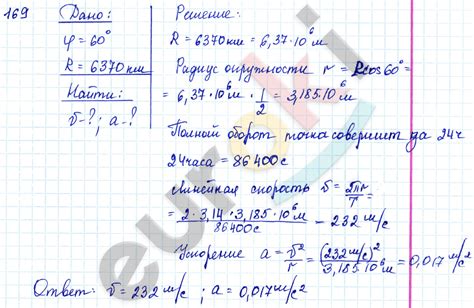 169 Дано: Решение:
φ = 60° R = 6370 км = 6,37·10⁶ м
R = 6370 км Радиус окружности r = Rcos60° =
Найти: = 6,37·10⁶ м · 1/2 = 3,185·10⁶ м
v-?; a-? Полный оборот точка совершит за 24ч
24 часа = 86400 с
Линейная скорость v = 2πr/T =
= 2·3,14·3,185·10⁶ м/86400 с - 232 м/с
Ускорение a = v²/r = (232 м/с)²/3,185·10⁶ м = 0,017 м/с²
Ответ: v = 232 м/с; a = 0,017 м/с²
euroki